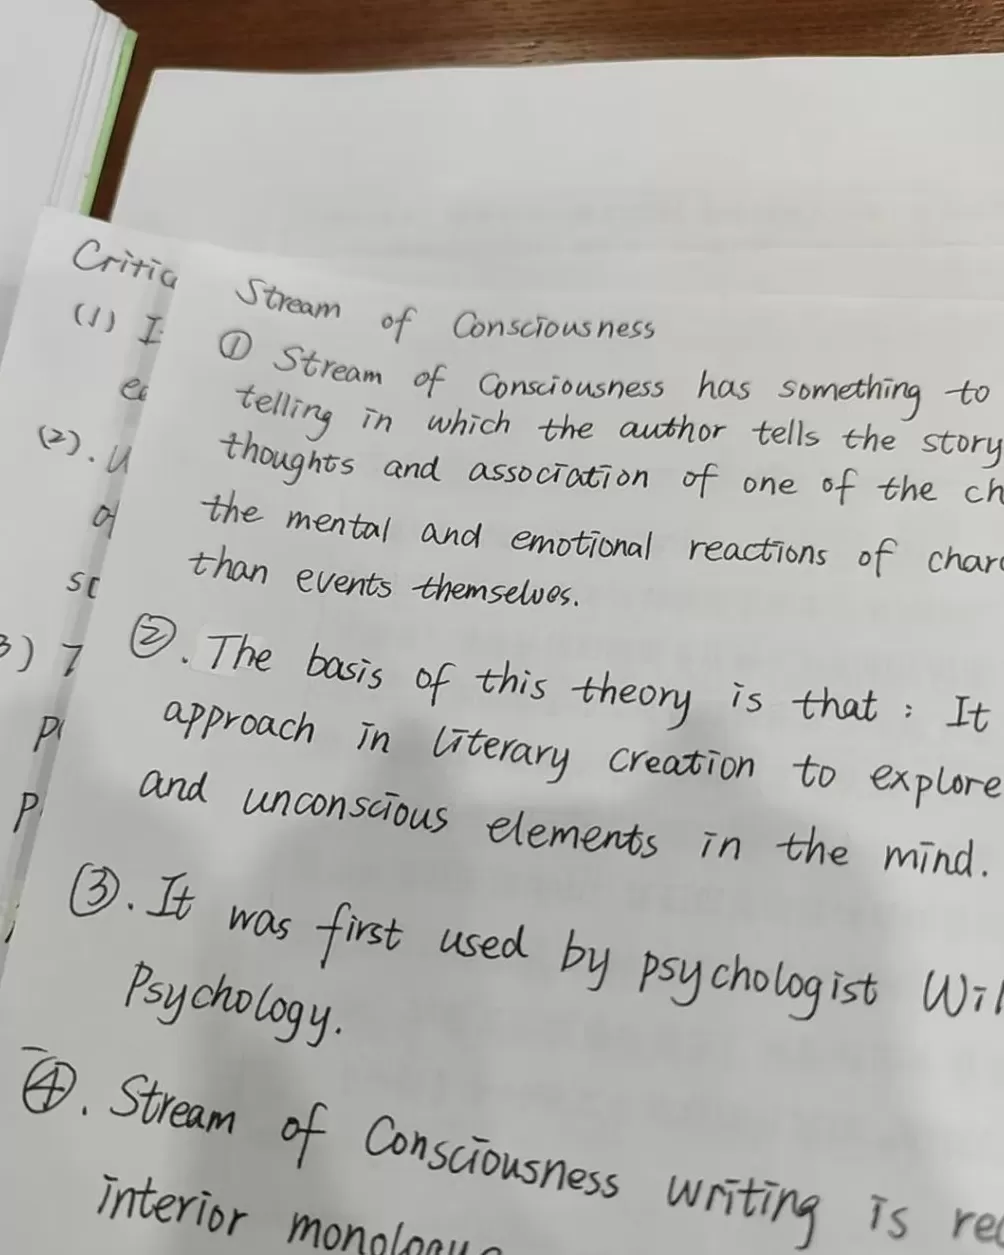 Critic
(1) I
(2). U
Stream of Consciousness
① Stream of Consciousness has something to
telling in which the author tells the story
thoughts and association of one of the ch
the mental and emotional reactions of char
than events themselves.
②. The basis of this theory is that : It
approach in literary creation to explore
and unconscious elements in the mind.
③. It was first used by psychologist Wil
Psychology.
④. Stream of Consciousness writing is re
interior monologue